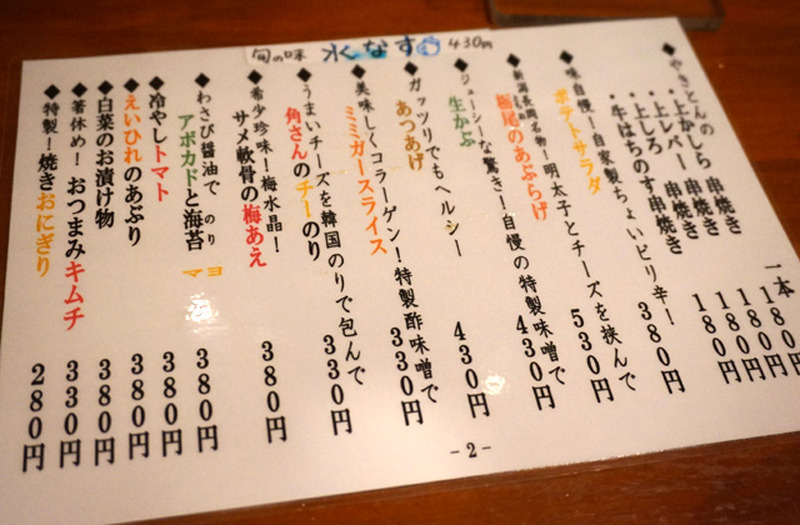 旬の味 水なす 430円
◆やきとんの 一本
・上かしら 串焼き 180円
・上レバー 串焼き 180円
・上しろ 串焼き 180円
・牛はちのす串焼き 180円
◆味自慢!自家製ちょいピリ辛!
ポテトサラダ 380円
◆新潟長岡名物!明太子とチーズを挟んで
栃尾のあぶらげ 530円
◆ジューシーな驚き!自慢の特製味噌で
生かぶ 430円
◆ガッツリでもヘルシー
あつあげ 430円
◆美味しくコラーゲン!特製酢味噌で
ミミガースライス 330円
◆うまいチーズを韓国のりで包んで
角さんのチーのり 330円
◆希少珍味!梅水晶!
サメ軟骨の梅あえ 380円
◆わさび醤油で のり
アボカドと海苔 マヨ 380円
◆冷やしトマト 380円
◆えいひれのあぶり 380円
◆白菜のお漬け物 380円
◆箸休め!おつまみキムチ 330円
◆特製!焼きおにぎり 280円
-2-